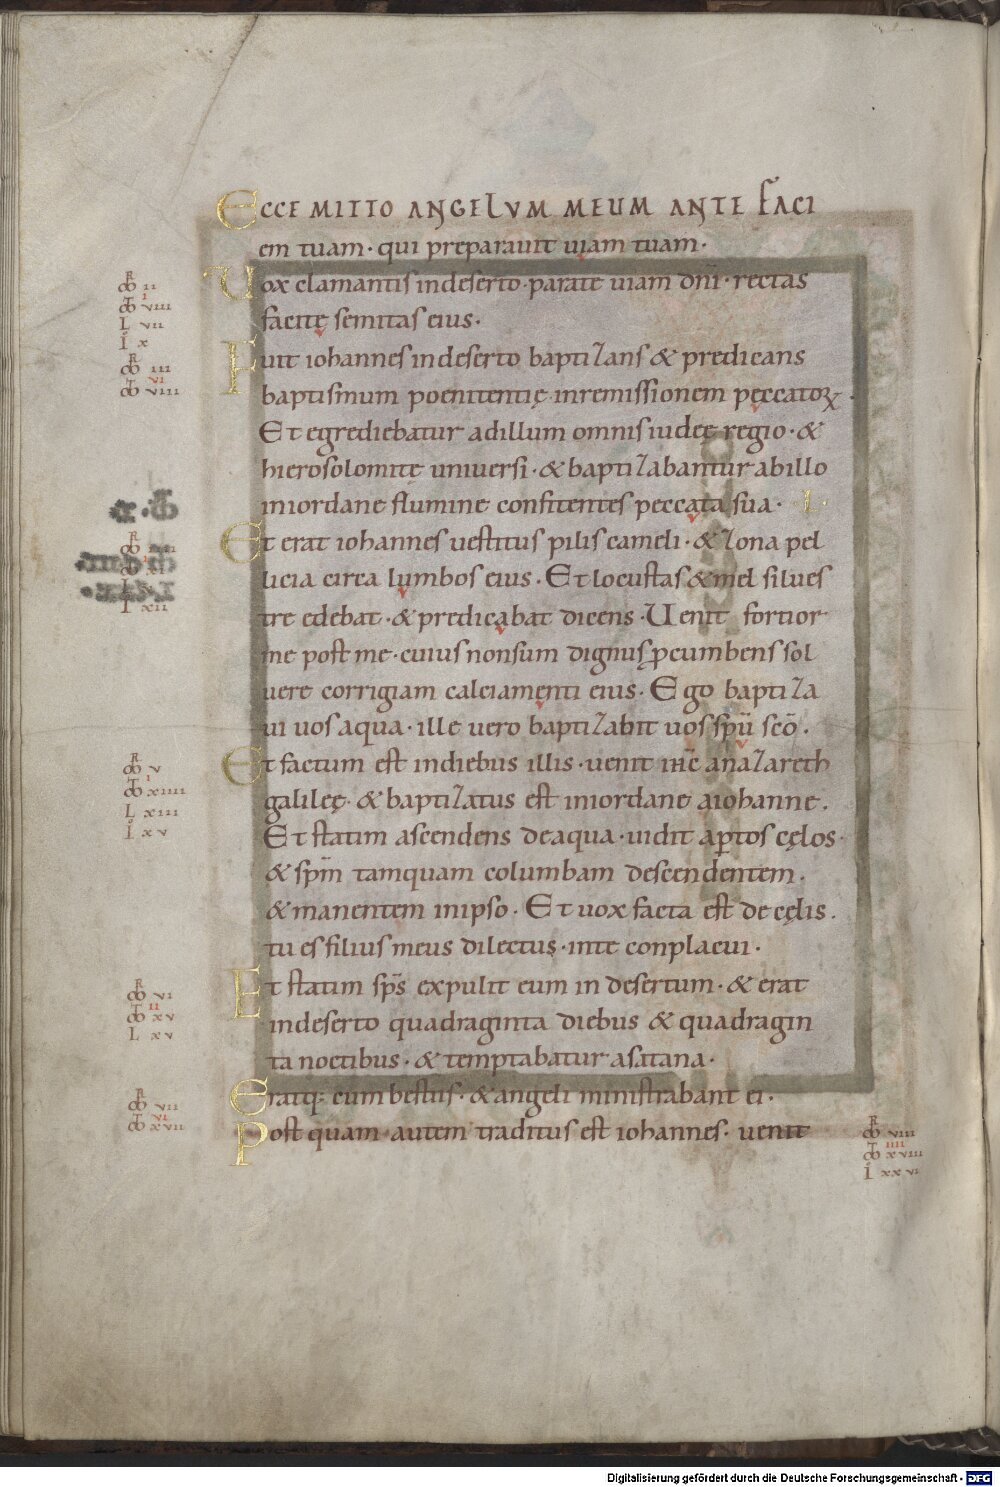 ECCE MITTO ANGELVM MEUM ANTE FACI
em tuam · qui preparauit uiam tuam ·
Uox clamantis indeserto · parate uiam dnī · rectas
facite semitas eius ·
Fuit iohannes indeserto baptizans & predicans
baptismum poenitentię inremissionem peccatoꝝ ·
Et egrediebatur adillum omnis iudeę regio · &
hierosolomitę uniuersi · & baptizabantur abillo
iniordane flumine confitentes peccata sua · L ·
Et erat iohannes uestitus pilis cameli · & zona pel
licia circa lumbos eius · Et locustas & mel silues
tre edebat · & predicabat dicens · Uenit fortior
me post me · cuius nonsum dignus ꝓcumbens sol
uere corrigiam calciamenti eius · Ego baptiza
ui uos aqua · ille uero baptizabit uos spū scō ·
Et factum est indiebus illis · uenit ihc̄ anazareth
galileę · & baptizatus est iniordane aiohanne ·
Et statim ascendens deaqua · uidit aꝑtos cęlos ·
& spm̄ tamquam columbam descendentem ·
& manentem inipso · Et uox facta est de cęlis ·
tu es filius meus dilectus · inte conplacui ·
Et statim sps̄ expulit eum in desertum · & erat
indeserto quadraginta diebus & quadragin
ta noctibus · & temptabatur asatana ·
Eratq; cum bestiis · & angeli ministrabant ei ·
Post quam autem traditus est iohannes · uenit
R
ii
viii
L vii
I x
R
iii
vi
viii
R
I xii
R
v
xiiii
L xiii
I xv
R
vi
ii
xv
L xv
R
vii
vi
xvii
R
viii
iiii
xviii
I xxvi
Digitalisierung gefördert durch die Deutsche Forschungsgemeinschaft - DFG